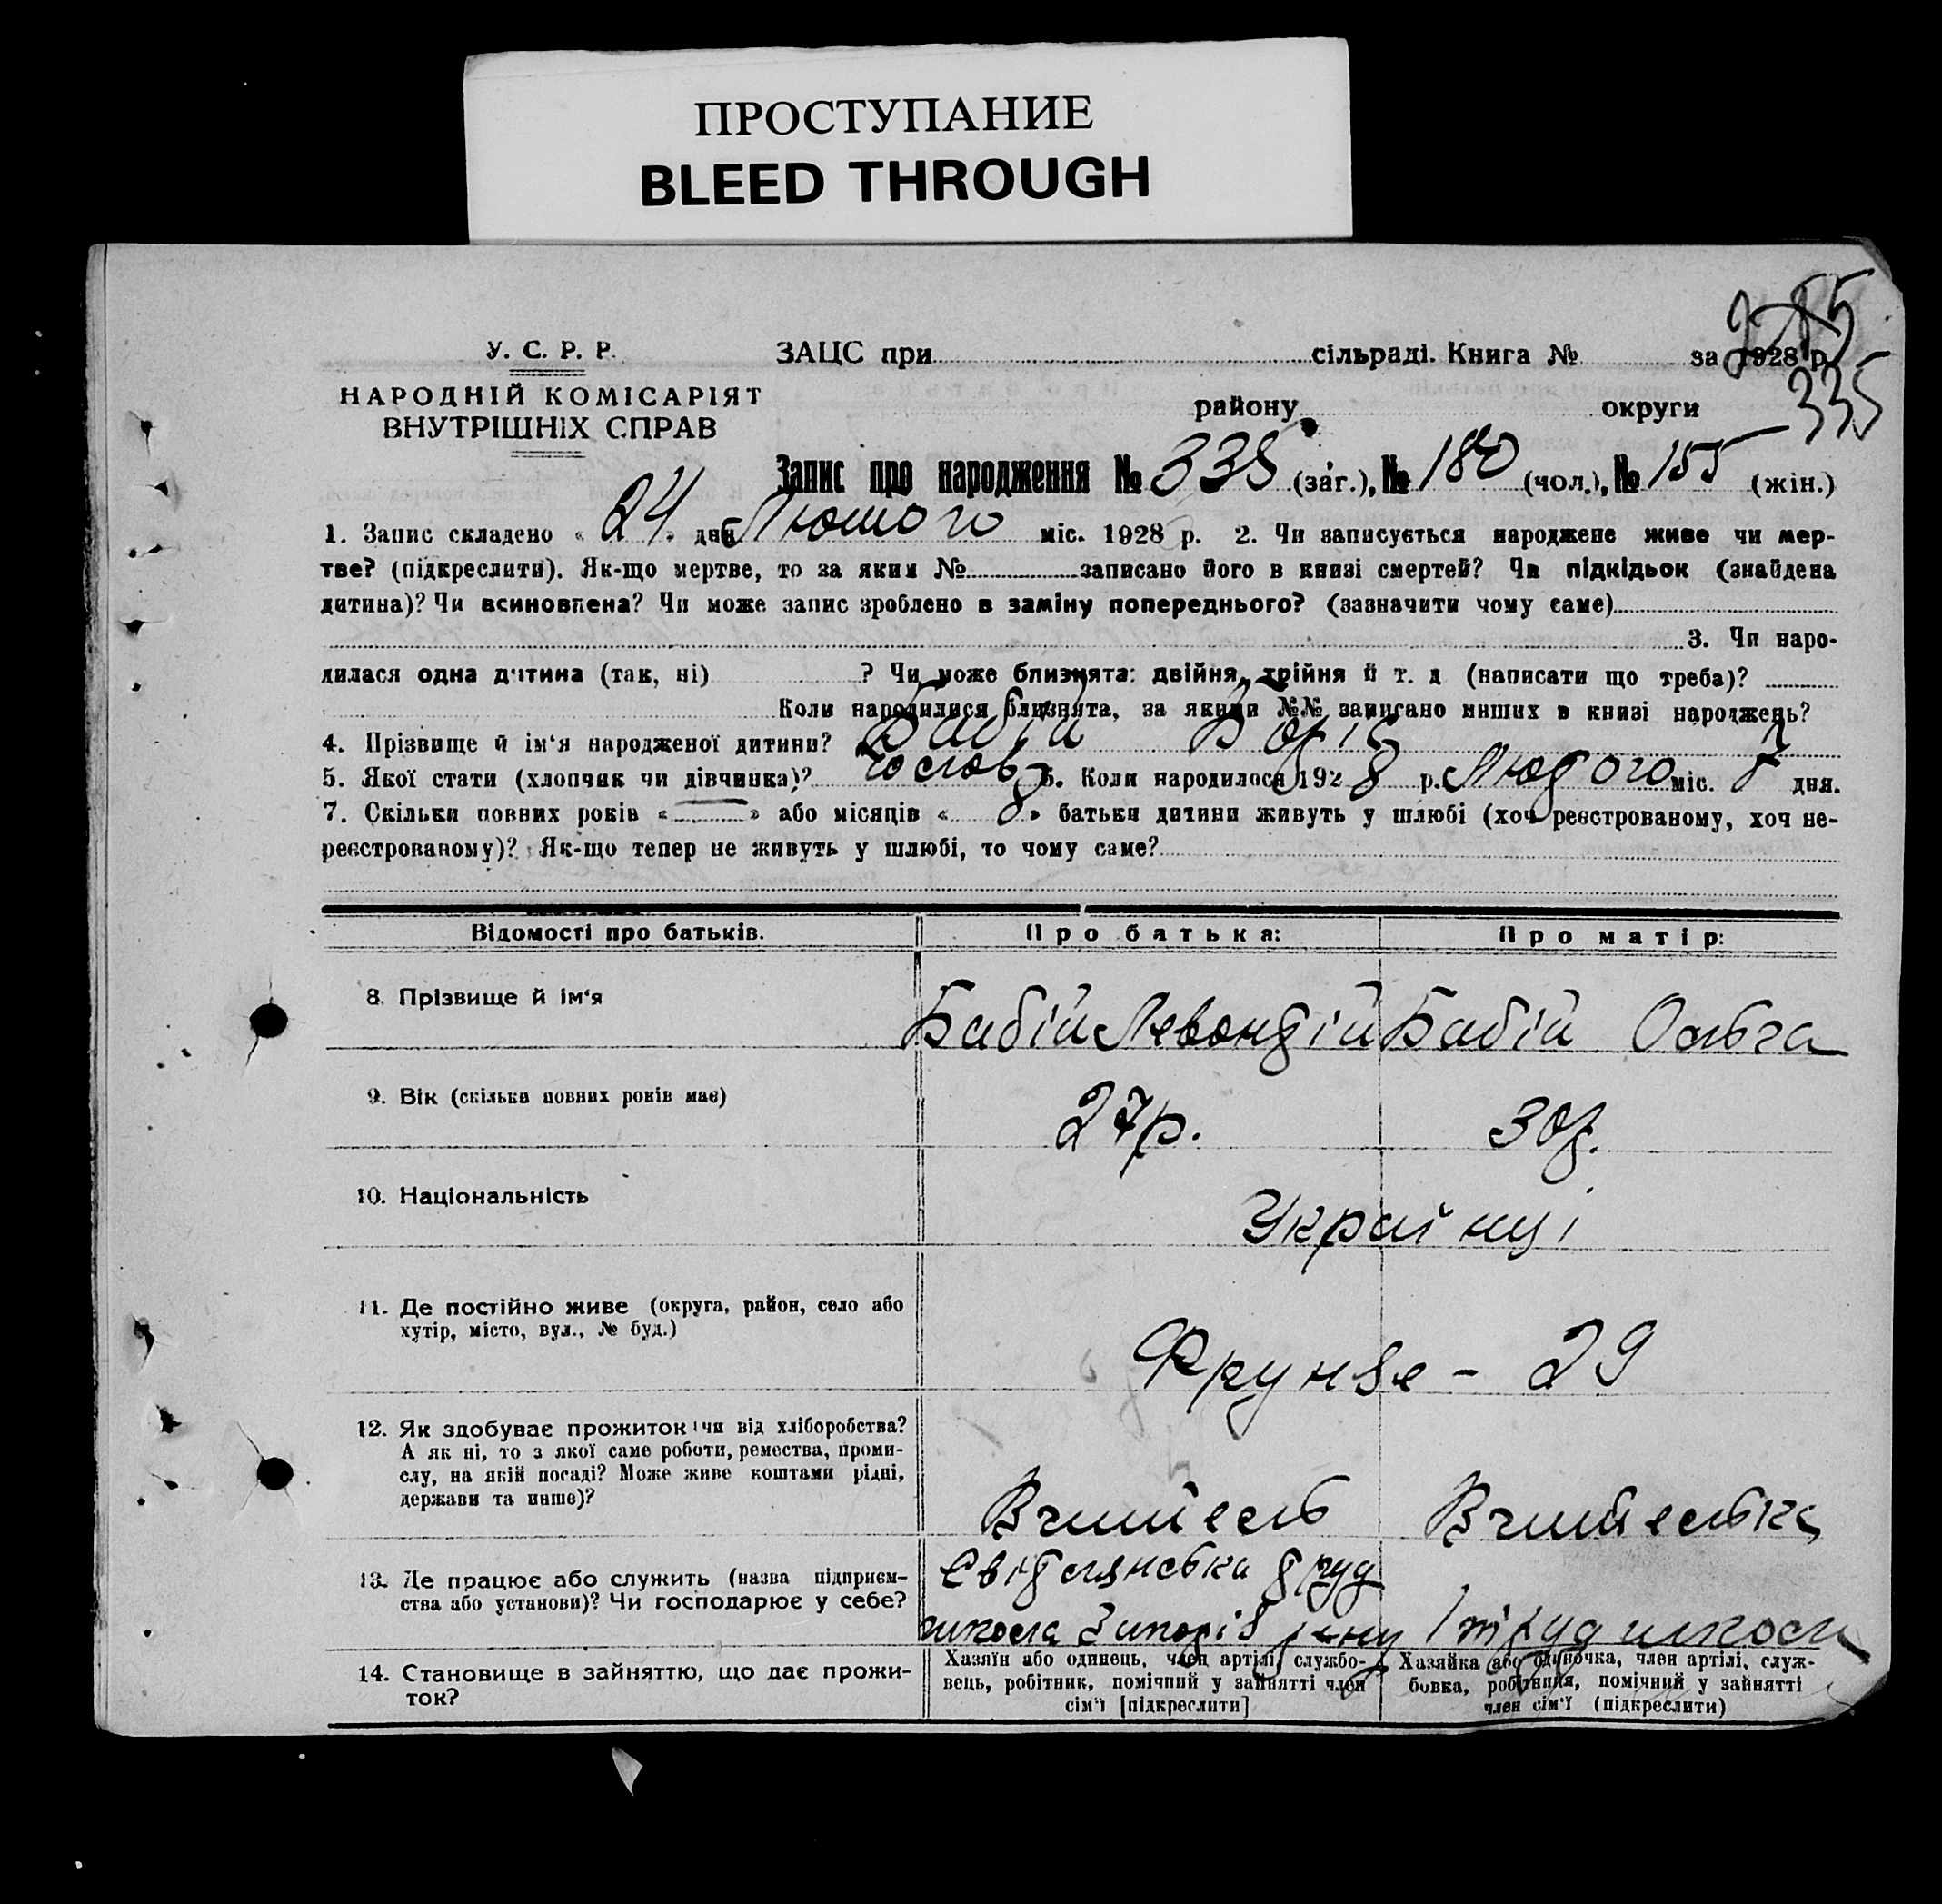 ПРОСТУПАНИЕ
BLEED THROUGH
335
У. С. Р. Р.
НАРОДНІЙ КОМІСАРІЯТ
ВНУТРІШНІХ СПРАВ
ЗАЦС при сільраді. Книга № за 1928 р.
району округи
Запис про народження № 335 (заг.), № 180 (чол.), № 155 (жін.)
1. Запис складено « 24 » дня Лютого міс. 1928 р. 2. Чи записується народжене живе чи мер-
тве? (підкреслити). Як-що мертве, то за яким № записано його в книзі смертей? Чи підкідьок (знайдена
дитина)? Чи всиновлена? Чи може запис зроблено в заміну попереднього? (зазначити чому саме)
3. Чи наро-
дилася одна дитина (так, ні) ? Чи може близнята: двійня, трійня й т. д (написати що треба)?
Коли народилися близнята, за якими №№ записано инших в книзі народжень?
4. Прізвище й ім'я народженої дитини? Бабій
5. Якої стати (хлопчик чи дівчинка)? 6. Коли народилося 1928 р. Лютого міс. дня.
7. Скільки повних років « — » або місяців « 8 » батьки дитини живуть у шлюбі (хоч реєстрованому, хоч не-
реєстрованому)? Як-що тепер не живуть у шлюбі, то чому саме?
Відомості про батьків. Про батька: Про матір:
8. Прізвище й ім'я Бабій Левондій Бабій Ольга
9. Вік (скільки повних років має) 27р. 30р.
10. Національність Українці
11. Де постійно живе (округа, район, село або
хутір, місто, вул., № буд.)
Фрунзе - 29
12. Як здобуває прожиток чи від хліборобства?
А як ні, то з якої саме роботи, ремества, проми-
слу, на якій посаді? Може живе коштами рідні,
держави та инше)?
Вчитель Вчителька
13. Де працює або служить (назва підприєм-
ства або установи)? Чи господарює у себе?
труд
школа 1 труд школи
14. Становище в зайняттю, що дає прожи-
ток?
Хазяїн або одинець, член артілі, службо-
вець, робітник, помічний у зайнятті член
сім'ї [підкреслити]
Хазяйка або одиночка, член артілі, служ-
бовка, робітниця, помічний у зайнятті
член сім'ї (підкреслити)